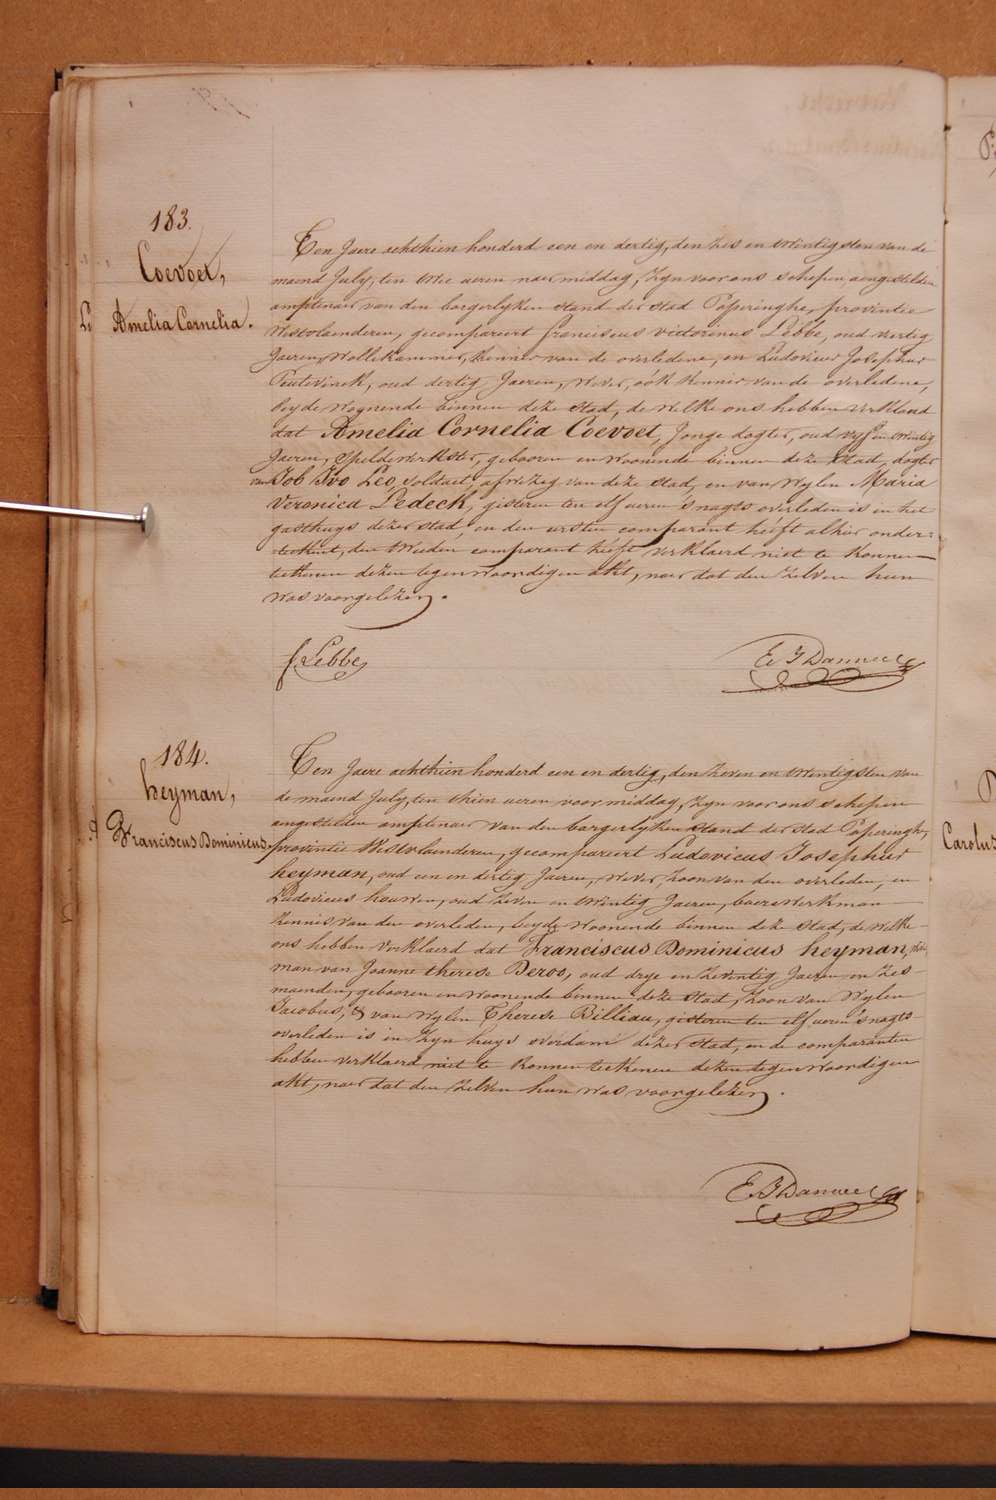 183.
Coevoet,
Amelia Cornelia.
Ten Jaere achthien honderd een en dertig, den zes en twintigsten van de
maend July, ten twee ueren naer middag, zyn voor ons schepen aengestelden
amptenaer van den borgerlyken stand der stad Poperinghe, provintie
Westvlaenderen, gecompareert franciscus victorinus Lebbe, oud veertig
Jaeren, Wollekammer, kennis van de overledene, en Ludovicus Josephus
Peutevinck, oud dertig Jaeren, wever, oók kennis van de overledene,
beyde woonende binnen deze stad, de welke ons hebben verklaerd
dat Amelia Cornelia Coevoet, Jonge dogter, oud vyf en twintig
Jaeren, Speldewerkster, gebooren en woonende binnen deze stad, dogter
van Job Ivo Leo, soldaet, afwezig van deze stad, en van Wylen Maria
Veronica Ledeck, gisteren ten elf ueren 's nagts overleden is in het
gasthuys dezer stad, en den eersten comparant heéft alhier onder=
teekent, den tweeden comparant heéft verklaerd niet te konnen
teekenen dezen tegenwoordigen akt, naer dat den zelven hun
was voorgelezen.
f Lebbe
E. J Dannee
184.
heyman,
Franciscus Dominicus.
Ten Jaere achthien honderd een en dertig, den zeven en twintigsten van
de maend July, ten thien ueren voor middag, zyn voor ons schepen
aengestelden amptenaer van den borgerlyken stand der stad Poperinghe,
provintie Westvlaenderen, gecompareert Ludovicus Josephus
heyman, oud een en dertig Jaeren, wever, zoon van den overleden, en
Ludovicus houwen, oud zeven en twintig Jaeren, boerewerkman
kennis van den overleden, beyde woonende binnen deze stad, de welke
ons hebben verklaerd dat Franciscus Dominicus heyman,
man van Joanne therese Deroo, oud drye en zeventig Jaeren en zes
maenden, gebooren en woonende binnen deze stad, zoon van Wylen
Jacobus, & van wylen Therese Billiau, gisteren ten elf ueren 's nagts
overleden is in zyn huys overdam dezer stad, en de comparanten
hebben verklaerd niet te konnen teekenen dezen tegenwoordigen
akt, naer dat den zelven hun was voorgelezen.
E. J Dannee
Carolus